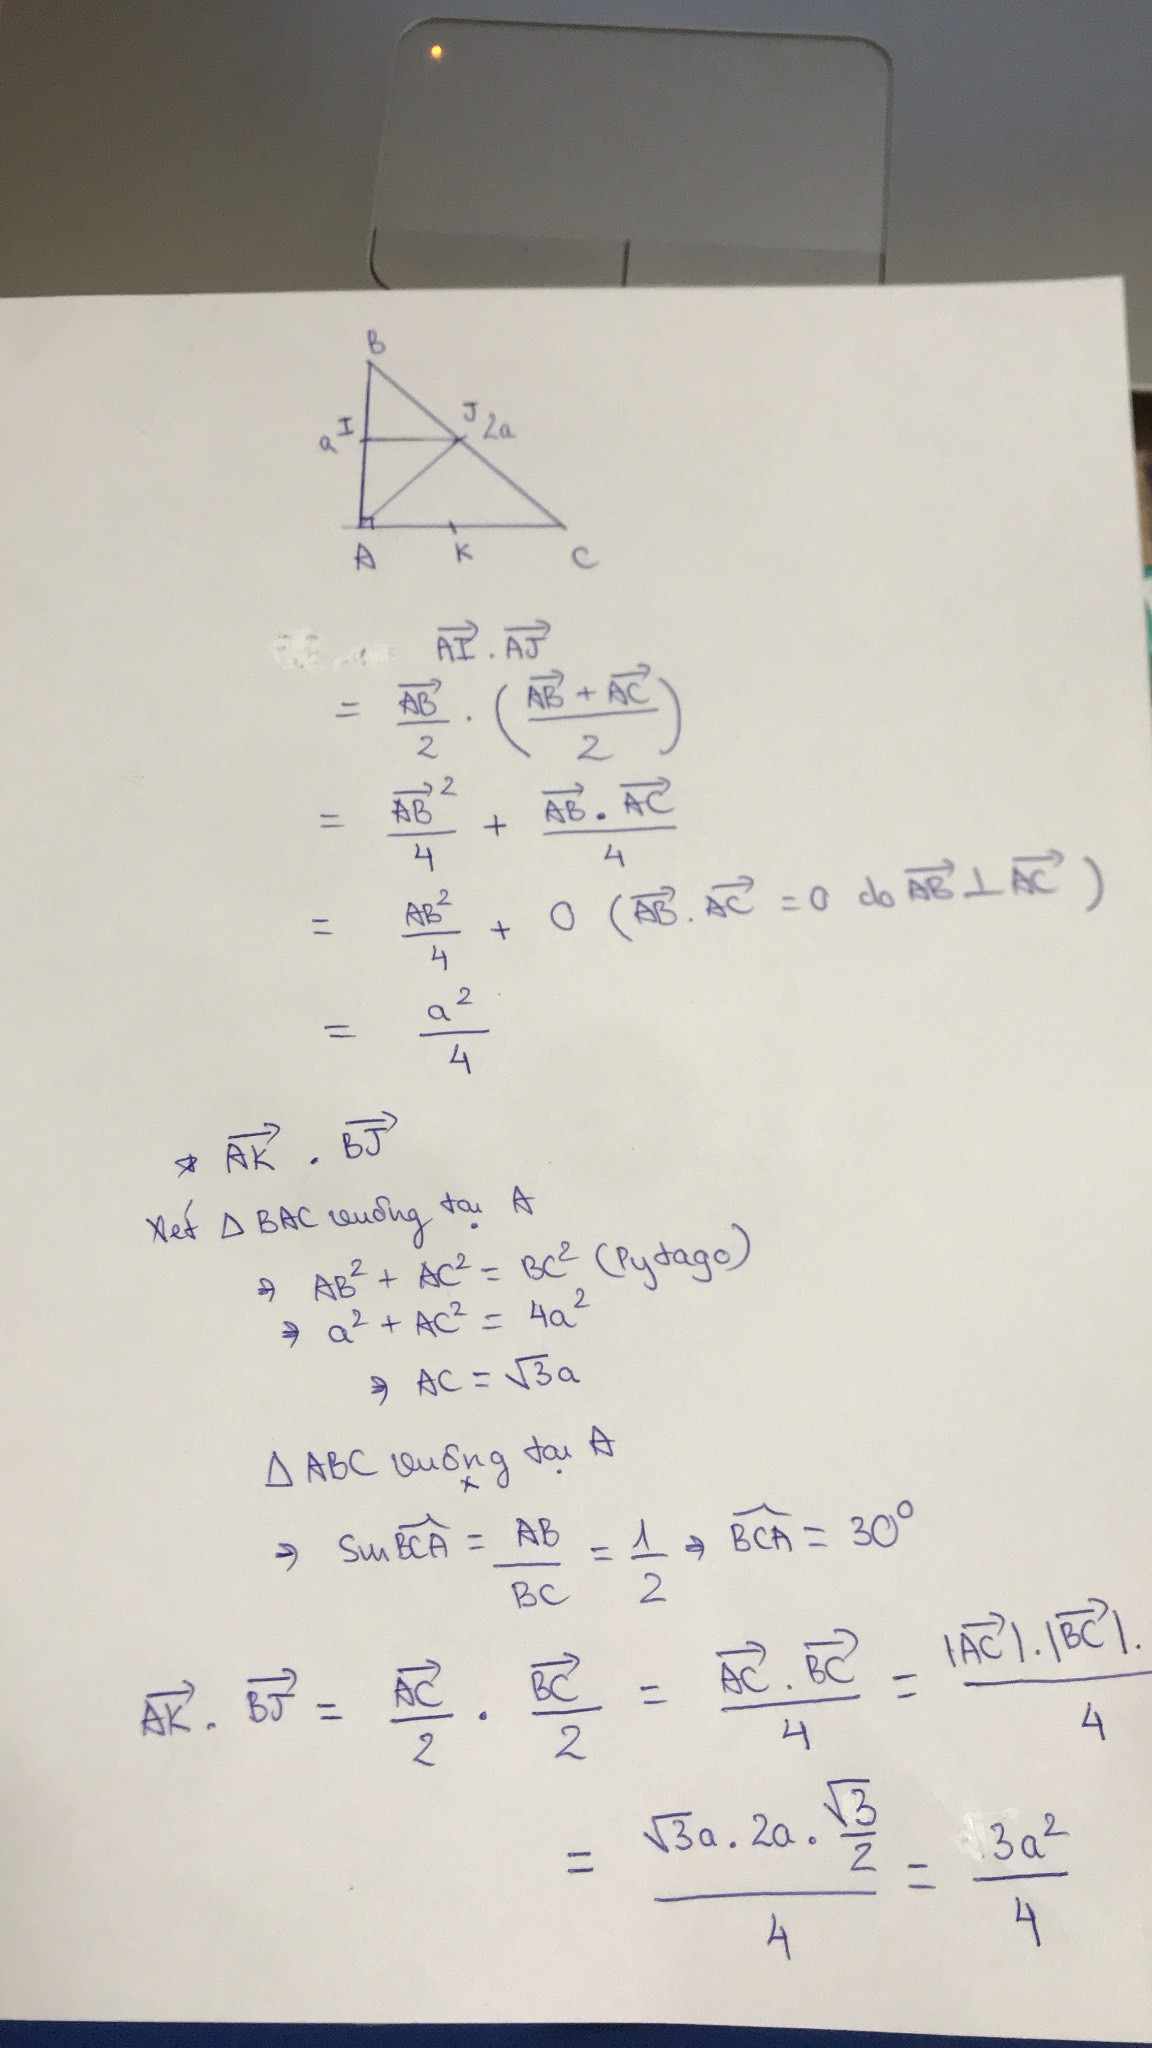 B
I
a
J
2a
A
K
C
$\overrightarrow{AI} . \overrightarrow{AJ}$
$= \frac{\overrightarrow{AB}}{2} . \left( \frac{\overrightarrow{AB} + \overrightarrow{AC}}{2} \right)$
$= \frac{\overrightarrow{AB}^2}{4} + \frac{\overrightarrow{AB} . \overrightarrow{AC}}{4}$
$= \frac{AB^2}{4} + 0$ ($\overrightarrow{AB} . \overrightarrow{AC} = 0$ do $\overrightarrow{AB} \perp \overrightarrow{AC}$)
$= \frac{a^2}{4}$
* $\overrightarrow{AK} . \overrightarrow{BJ}$
Xét Δ BAC vuông tại A
⇒ $AB^2 + AC^2 = BC^2$ (Pytago)
⇒ $a^2 + AC^2 = 4a^2$
⇒ $AC = \sqrt{3}a$
Δ ABC vuông tại A
⇒ $\sin \widehat{BCA} = \frac{AB}{BC} = \frac{1}{2}$ ⇒ $\widehat{BCA} = 30^0$
$\overrightarrow{AK} . \overrightarrow{BJ} = \frac{\overrightarrow{AC}}{2} . \frac{\overrightarrow{BC}}{2} = \frac{\overrightarrow{AC} . \overrightarrow{BC}}{4} = \frac{|\overrightarrow{AC}| . |\overrightarrow{BC}| .}{4}$
$= \frac{\sqrt{3}a . 2a . \frac{\sqrt{3}}{2}}{4} = \frac{3a^2}{4}$